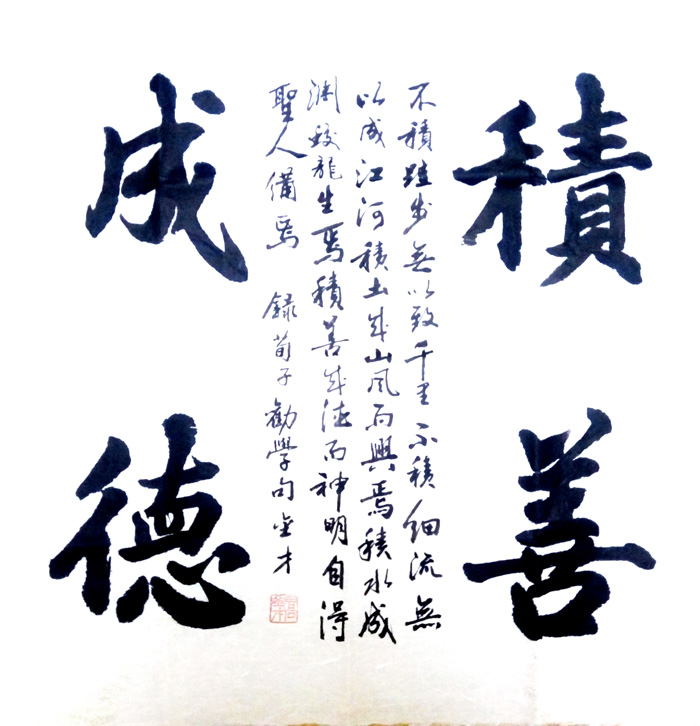 積善
不積跬步無以致千里不積細流無
以成江河積土成山風雨興焉積水成
渊蛟龍生焉積善成德而神明自得
聖人備焉 錄荀子勸學句 金才
成德